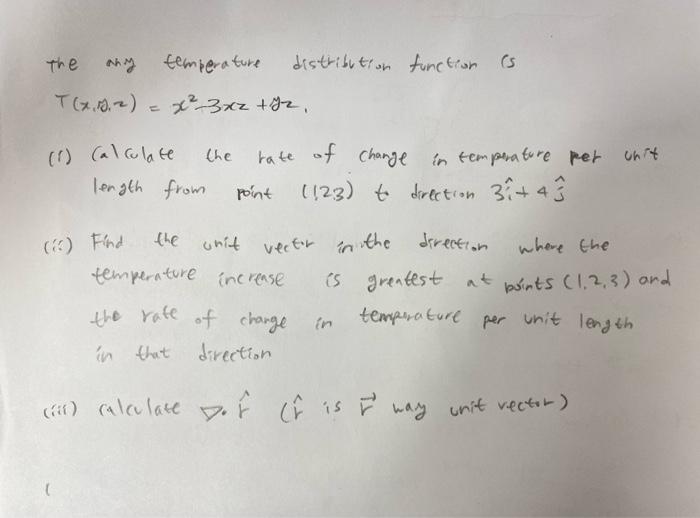 The any temperature distribution function is
T(x,y,z) = x²-3xz +yz,
(i) Calculate the rate of change in temperature per unit
length from point (1,2,3) to direction 3î + 4ĵ
(ii) Find the unit vector in the direction where the
temperature increase is greatest at points (1,2,3) and
the rate of change in temperature per unit length
in that direction
(iii) calculate ∇·r̂ (r̂ is r⃗ way unit vector)